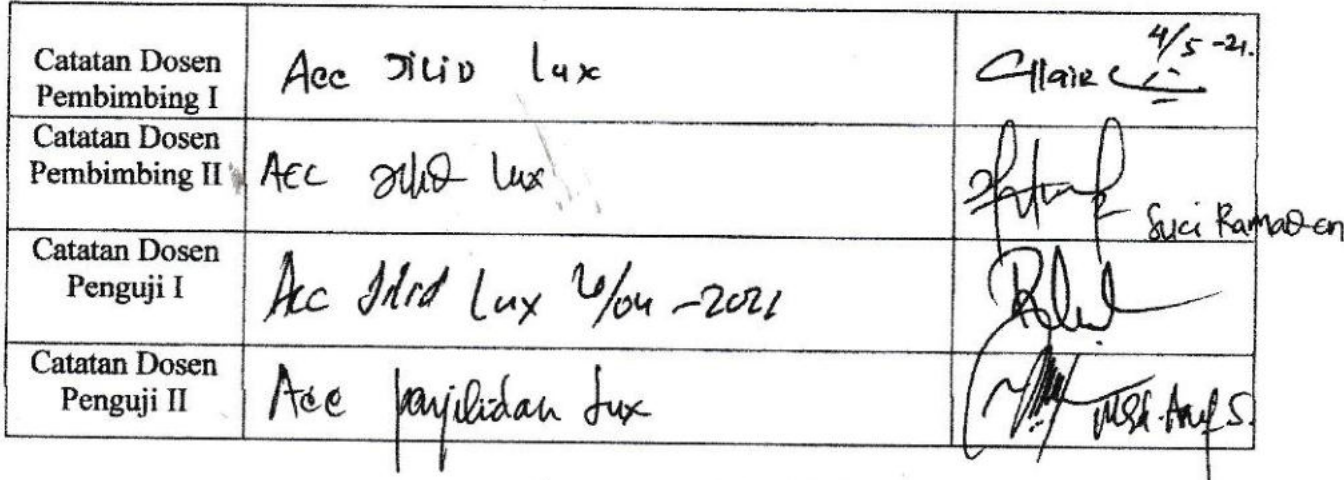 4/5-21.
Catatan Dosen
Pembimbing I
Acc Jilid lux
Catatan Dosen
Pembimbing II
Acc Jilid lux
Suci Ramadan
Catatan Dosen
Penguji I
Acc Jilid Lux /04-2021
Catatan Dosen
Penguji II
Acc penjilidan lux